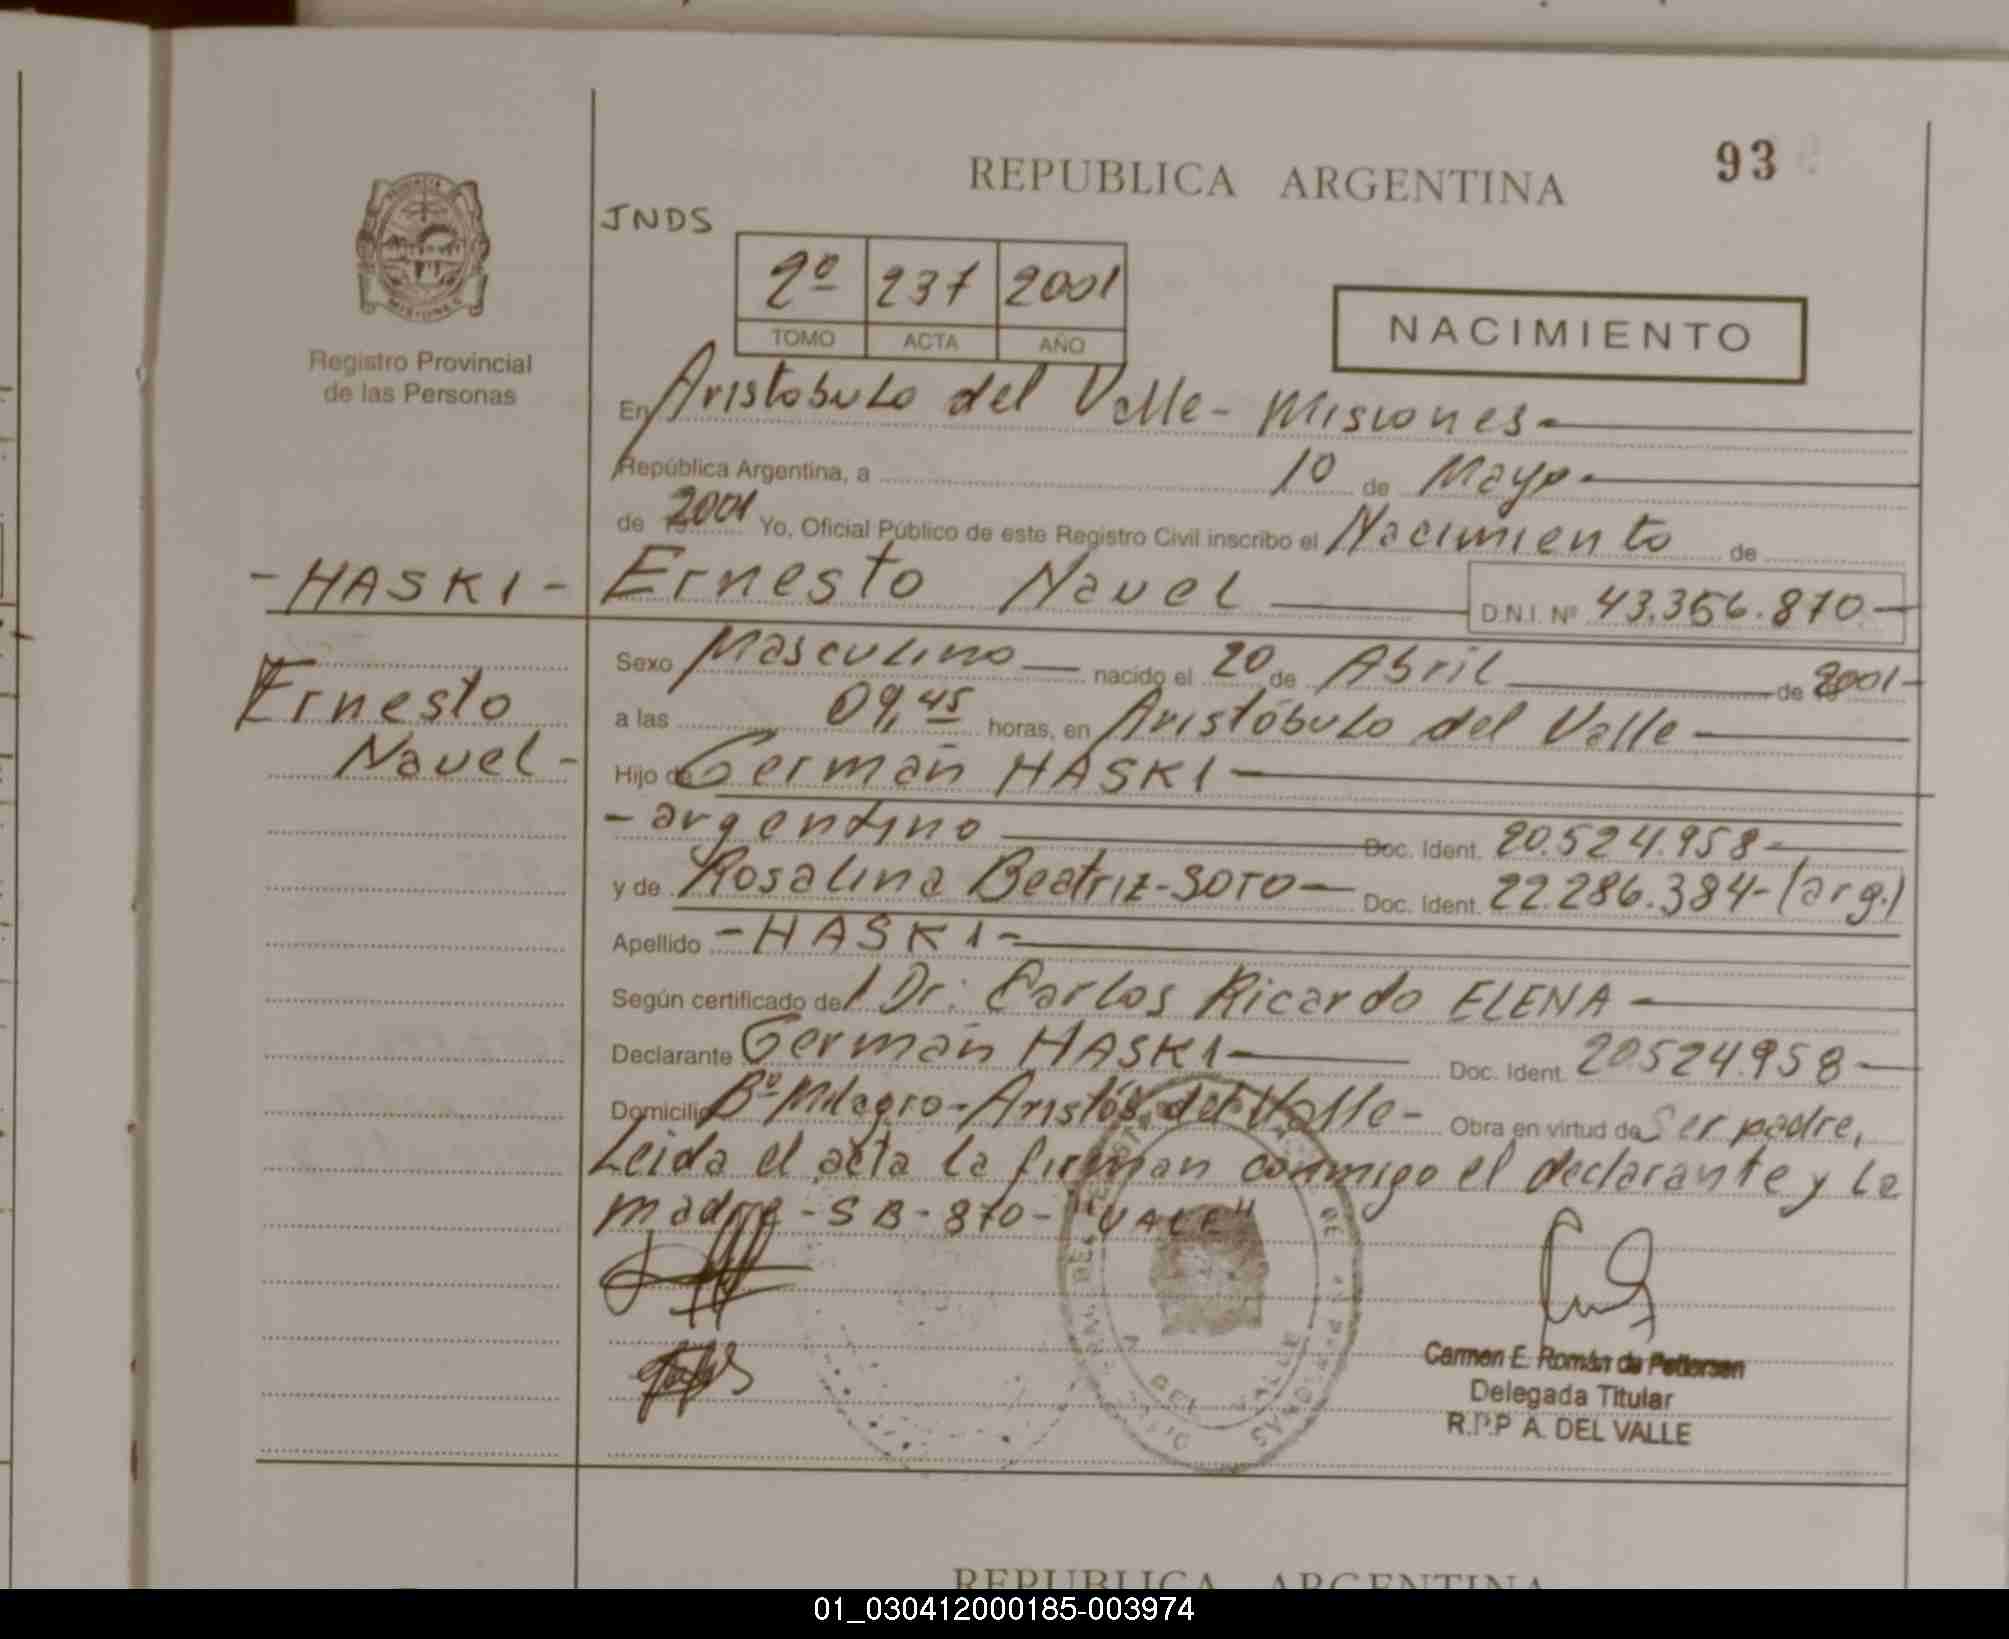 REPUBLICA ARGENTINA
93
JNDS
2º 237 2001
TOMO ACTA AÑO
NACIMIENTO
MISIONES
Registro Provincial
de las Personas
En Aristobulo del Valle - Misiones
República Argentina, a 10 de Mayo
de 2001 Yo, Oficial Público de este Registro Civil inscribo el Nacimiento de
- HASKI - Ernesto Nauel D.N.I. Nº 43.356.870
Sexo Masculino nacido el 20 de Abril de 2001
Ernesto
a las 09,45 horas, en Aristóbulo del Valle
Nauel -
Hijo de Germán HASKI
- argentino Doc. Ident. 20.524.958
y de Rosalina Beatriz - SOTO Doc. Ident. 22.286.384 - (arg.)
Apellido - HASKI -
Según certificado del Dr: Carlos Ricardo ELENA
Declarante Germán HASKI Doc. Ident. 20.524.958
Domicilio Bº Milagro - Aristób. del Valle - Obra en virtud de Ser padre,
Leida el acta la firman conmigo el declarante y la
madre - S B - 870 - "VALE"
Carmen E. Román de Pettersen
Delegada Titular
R.P.P A. DEL VALLE
REPUBLICA ARGENTINA
01_030412000185-003974